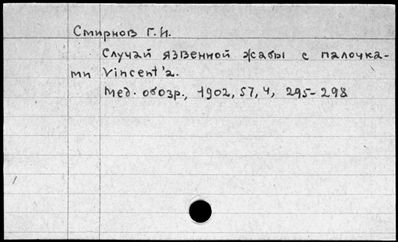 Смирнов Г.И.
Случай язвенной жабы с палочка-
ми Vincent'a.
Мед. обозр., 1902, 57, 4, 295-298